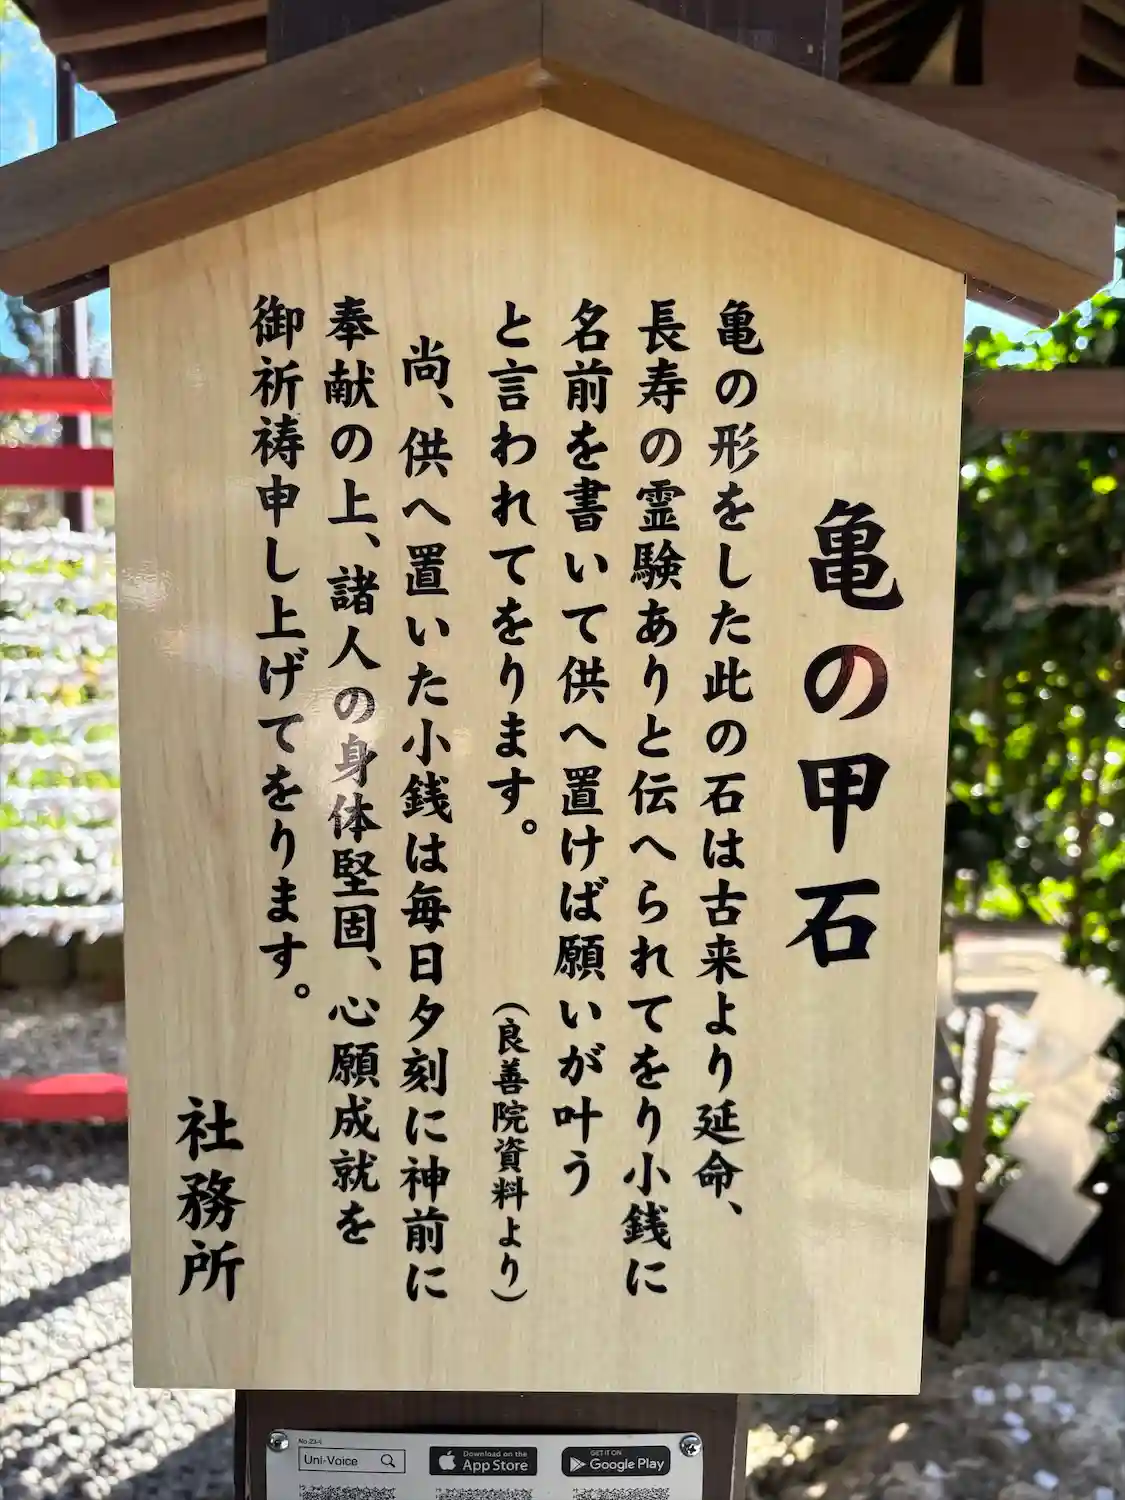 亀の甲石
亀の形をした此の石は古来より延命、
長寿の霊験ありと伝へられてをり小銭に
名前を書いて供へ置けば願いが叶う
と言われてをります。
(良善院資料より)
尚、供へ置いた小銭は毎日夕刻に神前に
奉献の上、諸人の身体堅固、心願成就を
御祈祷申し上げてをります。
社務所
Uni-Voice
Download on the
App Store
GET IT ON
Google Play